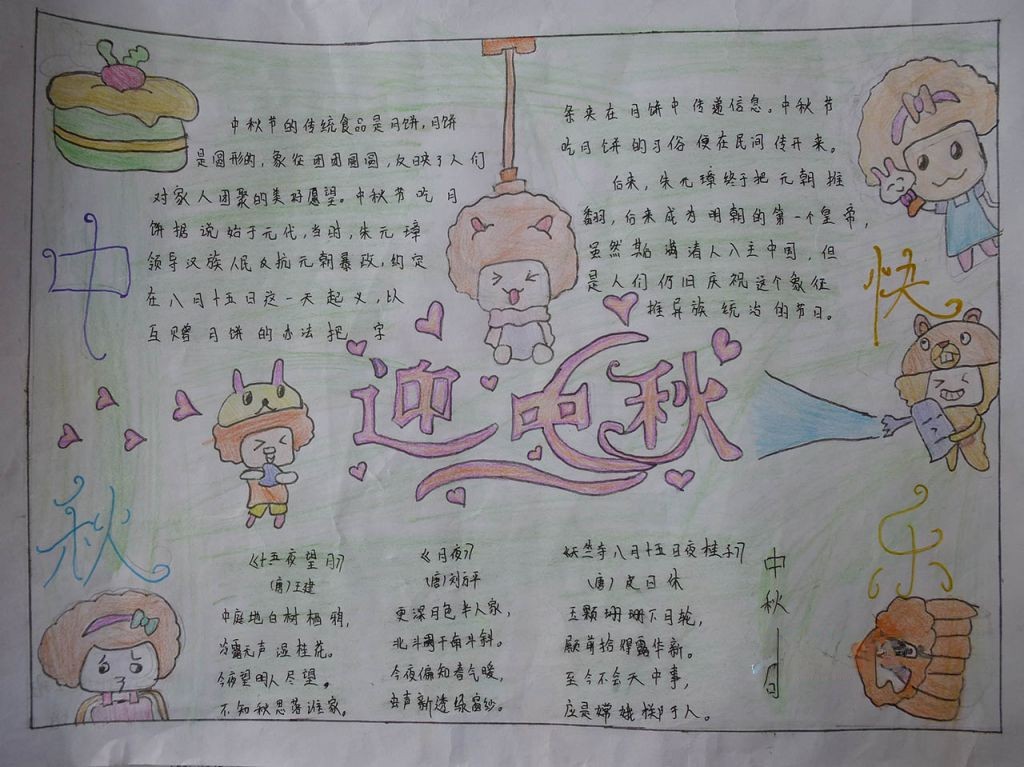 中秋节的传统食品是月饼,月饼
是圆形的,象征团团圆圆,反映了人们
对家人团聚的美好愿望。中秋节吃月
饼据说始于元代,当时,朱元璋
领导汉族人民反抗元朝暴政,约定
在八月十五日这一天起义,以
互赠月饼的办法把字
条夹在月饼中传递信息。中秋节
吃月饼的习俗便在民间传开来。
后来,朱元璋终于把元朝推
翻,后来成为明朝的第一个皇帝,
虽然其后满清人入主中国,但
是人们仍旧庆祝这个象征
推异族统治的节日。
迎中秋
中
秋
快
乐
《十五夜望月》
(唐)王建
中庭地白树栖鸦,
冷露无声湿桂花。
今夜望明人尽望。
不知秋思落谁家。
《月夜》
(唐)刘方平
更深月色半人家,
北斗阑干南斗斜。
今夜偏知春气暖,
虫声新透绿窗纱。
《天竺寺八月十五日夜桂子》
(唐)皮日休
玉颗珊珊下月轮,
殿前拾得露华新。
至今不会天中事,
应是嫦娥掷于人。
中
秋